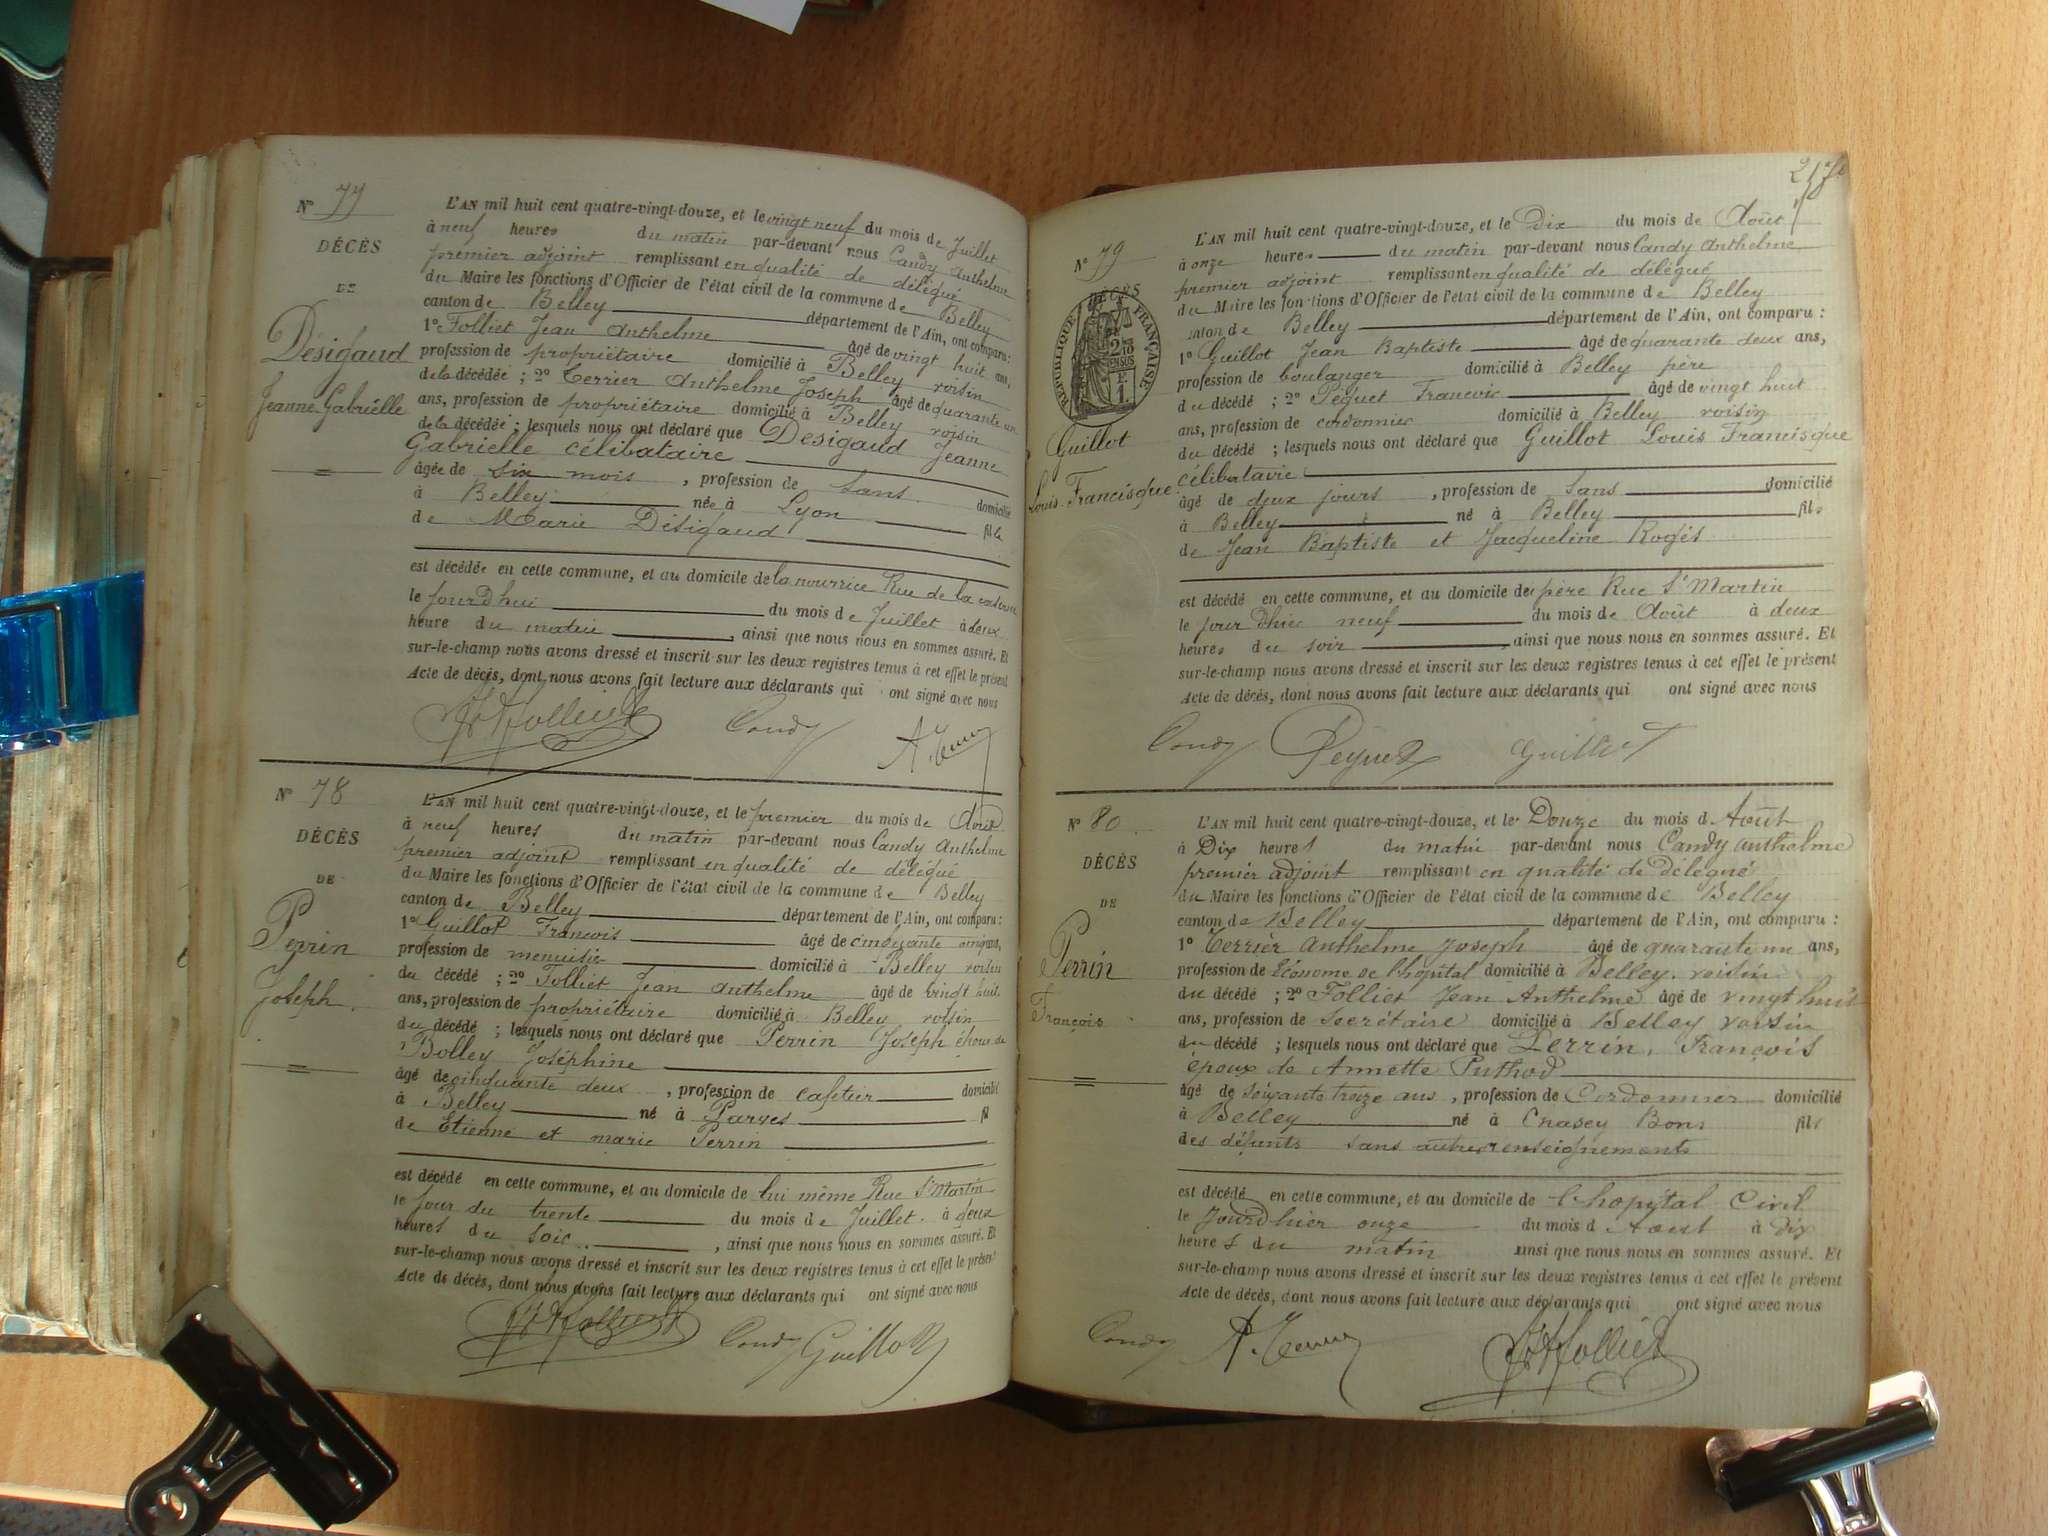 N° 77
DÉCÈS
DE
Désigaud
Jeanne Gabriélle
L'AN mil huit cent quatre-vingt-douze, et le vingt neuf du mois de Juillet
à neuf heures du matin par-devant nous Candy Anthelme
premier adjoint remplissant en qualité de délégué
du Maire les fonctions d'Officier de l'état civil de la commune de Belley
canton de Belley département de l'Ain, ont comparu :
1° Folliet Jean Anthelme âgé de vingt huit ans,
profession de propriétaire domicilié à Belley voisin
de la décédée ; 2° Terrier Anthelme Joseph âgé de quarante un
ans, profession de propriétaire domicilié à Belley voisin
de la décédée ; lesquels nous ont déclaré que Désigaud Jeanne
Gabrielle célibataire
âgée de six mois , profession de sans domicilié
à Belley née à Lyon fille
de Marie Désigaud
est décédée en cette commune, et au domicile de la nourrice Rue de la
le jourd'hui du mois de Juillet à deux
heure du matin , ainsi que nous nous en sommes assuré. Et
sur-le-champ nous avons dressé et inscrit sur les deux registres tenus à cet effet le présent
Acte de décès, dont nous avons fait lecture aux déclarants qui ont signé avec nous
Folliet Candy A. Terrier
N° 78
DÉCÈS
DE
Perrin
Joseph
L'AN mil huit cent quatre-vingt-douze, et le premier du mois de Août
à neuf heures du matin par-devant nous Candy Anthelme
premier adjoint remplissant en qualité de délégué
du Maire les fonctions d'Officier de l'état civil de la commune de Belley
canton de Belley département de l'Ain, ont comparu :
1° Guillot François âgé de cinquante ans,
profession de menuisier domicilié à Belley voisin
du décédé ; 2° Folliet Jean Anthelme âgé de vingt huit
ans, profession de propriétaire domicilié à Belley voisin
du décédé ; lesquels nous ont déclaré que Perrin Joseph époux de
Bolley Joséphine
âgé de cinquante deux , profession de cafetier domicilié
à Belley né à Parves fil
de Etienne et marie Perrin
est décédé en cette commune, et au domicile de lui même Rue St Martin
le jour du trente du mois de Juillet à deux
heures du soir , ainsi que nous nous en sommes assuré. Et
sur-le-champ nous avons dressé et inscrit sur les deux registres tenus à cet effet le présent
Acte de décès, dont nous avons fait lecture aux déclarants qui ont signé avec nous
Folliet Candy Guillot
N° 79
DÉCÈS
RÉPUBLIQUE FRANÇAISE
Guillot
Louis Francisque
L'AN mil huit cent quatre-vingt-douze, et le Dix du mois de Août
à onze heures du matin par-devant nous Candy Anthelme
premier adjoint remplissant en qualité de délégué
du Maire les fonctions d'Officier de l'état civil de la commune de Belley
canton de Belley département de l'Ain, ont comparu :
1° Guillot Jean Baptiste âgé de quarante deux ans,
profession de boulanger domicilié à Belley père
du décédé ; 2° Péguet Francois âgé de vingt huit
ans, profession de cordonnier domicilié à Belley voisin
du décédé ; lesquels nous ont déclaré que Guillot Louis Francisque
célibataire
âgé de deux jours , profession de sans domicilié
à Belley né à Belley fils
de Jean Baptiste et Jacqueline Rogés
est décédé en cette commune, et au domicile de père Rue St Martin
le jour d'hier neuf du mois de Août à deux
heures du soir ainsi que nous nous en sommes assuré. Et
sur-le-champ nous avons dressé et inscrit sur les deux registres tenus à cet effet le présent
Acte de décès, dont nous avons fait lecture aux déclarants qui ont signé avec nous
Candy Peguet Guillot
N° 80
DÉCÈS
DE
Perrin
François
L'AN mil huit cent quatre-vingt-douze, et le Douze du mois d Août
à Dix heures du matin par-devant nous Candy Anthelme
premier adjoint remplissant en qualité de Délégué
du Maire les fonctions d'Officier de l'état civil de la commune de Belley
canton de Belley département de l'Ain, ont comparu :
1° Terrier Anthelme Joseph âgé de quarante un ans,
profession de Econome de l'hopital domicilié à Belley voisin
du décédé ; 2° Folliet Jean Anthelme âgé de vingt huit
ans, profession de Secrétaire domicilié à Belley voisin
du décédé ; lesquels nous ont déclaré que Perrin, François
époux de Annette Puthod
âgé de Soixante treize ans , profession de Cordonnier domicilié
à Belley né à Chasey Bons fils
des défunts sans autres renseignements
est décédé en cette commune, et au domicile de l'hopital Civil
le Jourd'hier onze du mois d Aout à Dix
heures du matin ainsi que nous nous en sommes assuré. Et
sur-le-champ nous avons dressé et inscrit sur les deux registres tenus à cet effet le présent
Acte de décès, dont nous avons fait lecture aux déclarants qui ont signé avec nous
Candy A. Terrier Folliet